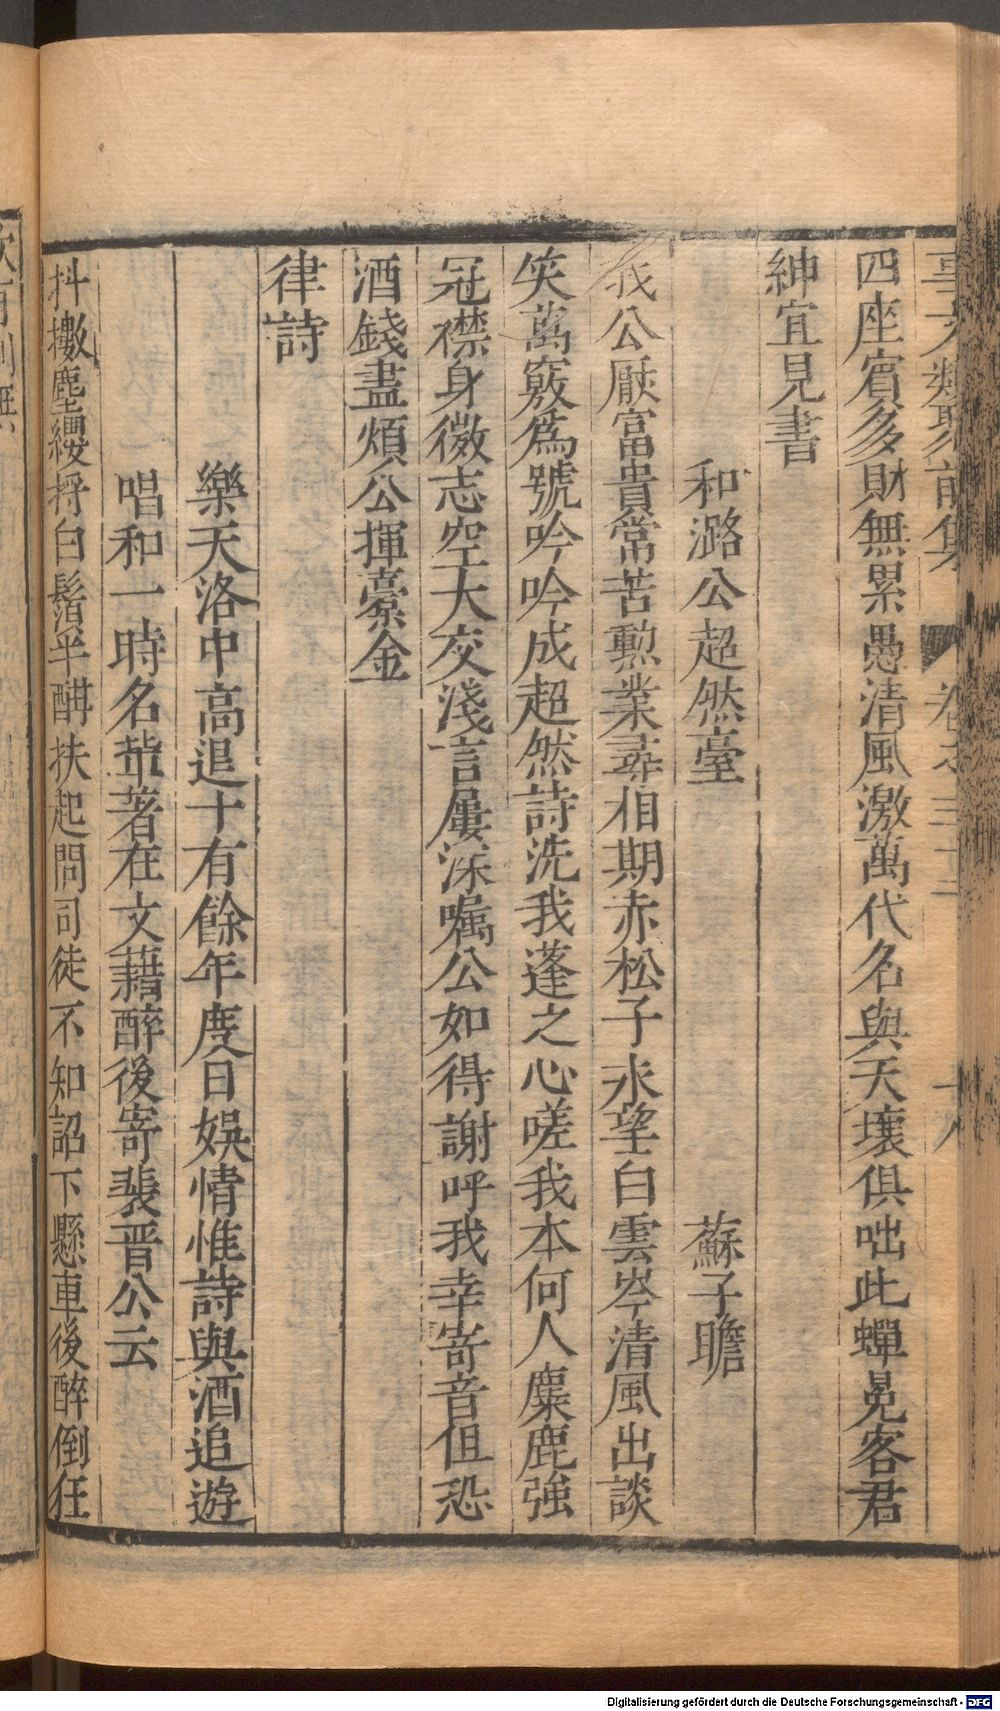 事文類聚前集 卷之三十三 十八
四座賓多財無累愚清風激萬代名與天壤俱咄此蟬冕客君
紳宜見書
和潞公超然臺 蘇子瞻
我公厭富貴常苦勲業尋相期赤松子永望白雲岑清風出談
笑萬竅為號吟吟成超然詩洗我蓬之心嗟我本何人麋鹿強
冠襟身微志空大交淺言屢深囑公如得謝呼我幸寄音但恐
酒錢盡煩公揮橐金
律詩
樂天洛中高退十有餘年度日娛情惟詩與酒追遊
唱和一時名輩著在文藉醉後寄裴晉公云
抖擻塵纓捋白鬚半酣扶起問司徒不知詔下懸車後醉倒狂
Digitalisierung gefördert durch die Deutsche Forschungsgemeinschaft - DFG